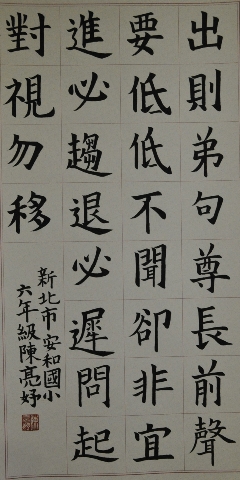 出則弟句尊長前聲
要低低不聞卻非宜
進必趨退必遲問起
對視勿移
新北市安和國小
六年級陳亮妤